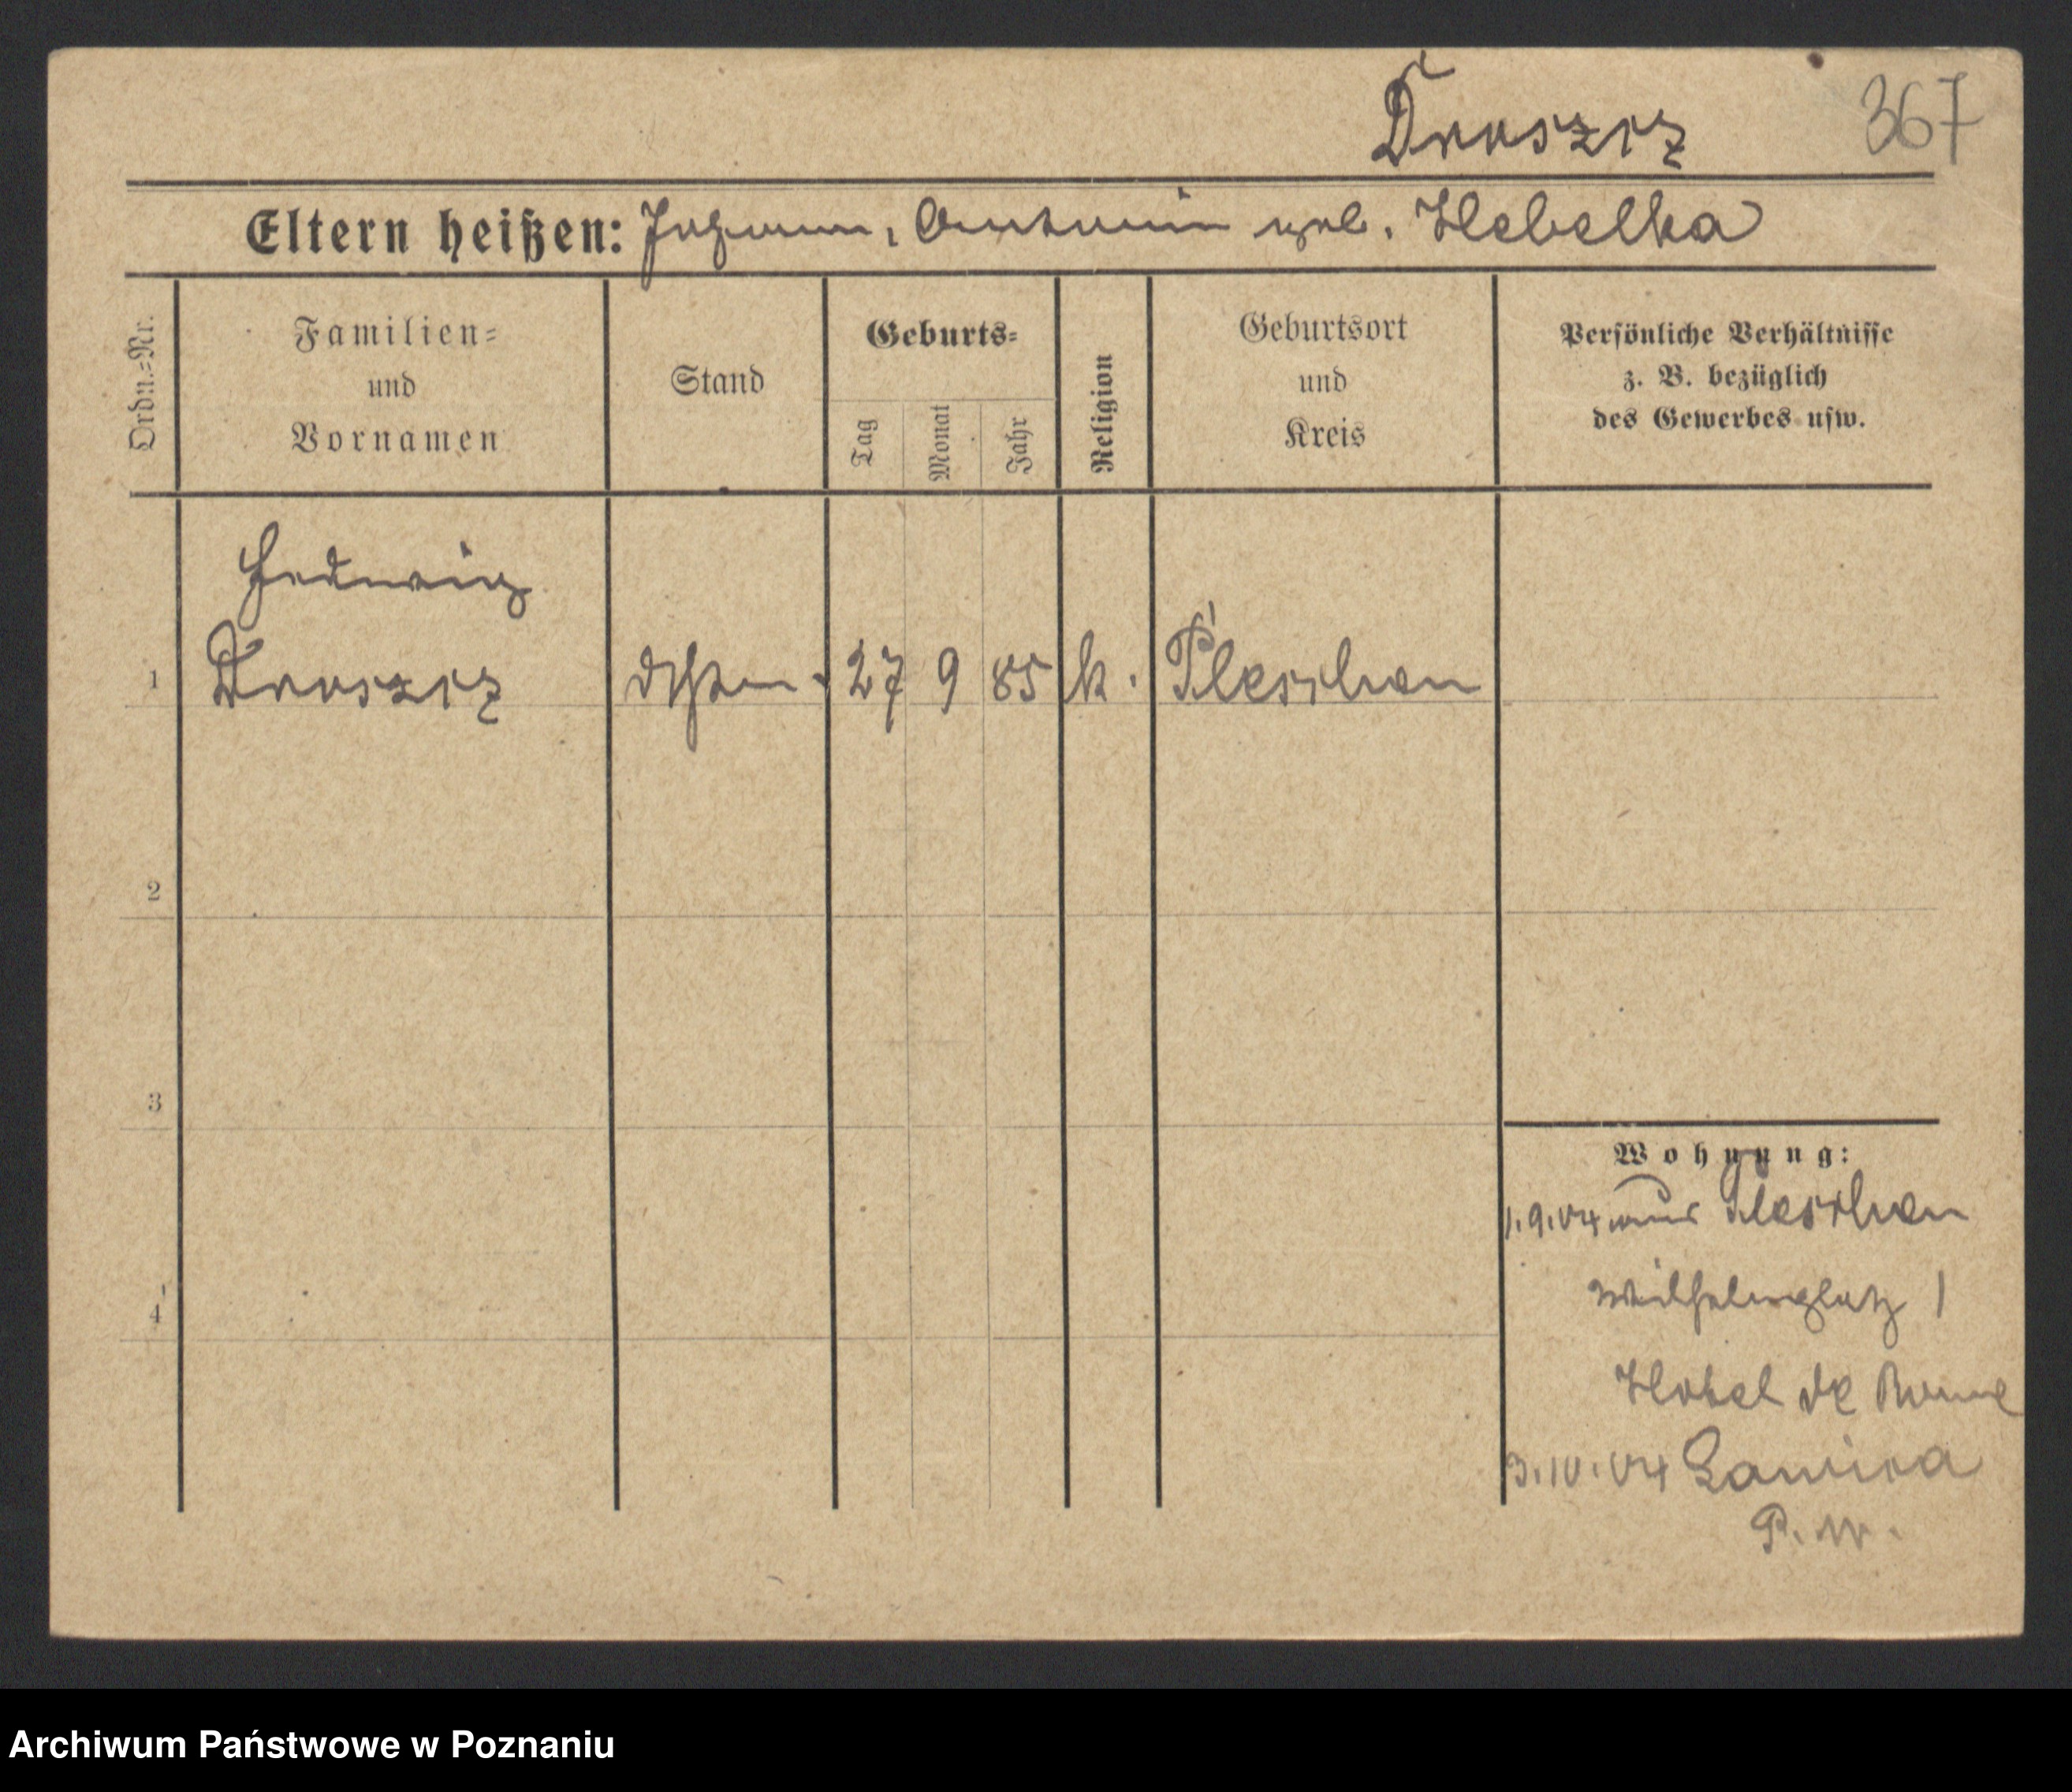 Droszcz 367
Eltern heißen: Johann, Antonie geb. Hebelka
Ordn.=Nr.
Familien=
und
Vornamen
Stand
Geburts=
Tag
Monat
Jahr
Religion
Geburtsort
und
Kreis
Persönliche Verhältnisse
z. B. bezüglich
des Gewerbes usw.
Hedwig
1 Droszcz 27 9 85 k. Pleschen
2
3
4
Wohnung:
1.9.04 aus Pleschen
Wilhelmplatz 1
Hotel de Rome
3.10.04
P. W.
Archiwum Państwowe w Poznaniu